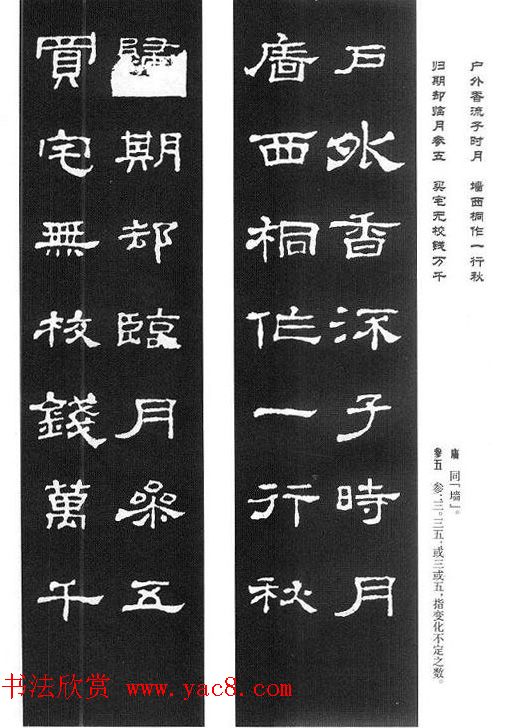 户外香流子时月 墙西桐作一行秋
归期却临月参五 买宅无校钱万千
廧 同「墙」。
参五 参,三。三五,或三或五,指变化不定之数。
戶外香流子時月
廧西桐作一行秋
歸期却臨月參五
買宅無校錢萬千
书法欣赏 www.yac8.com